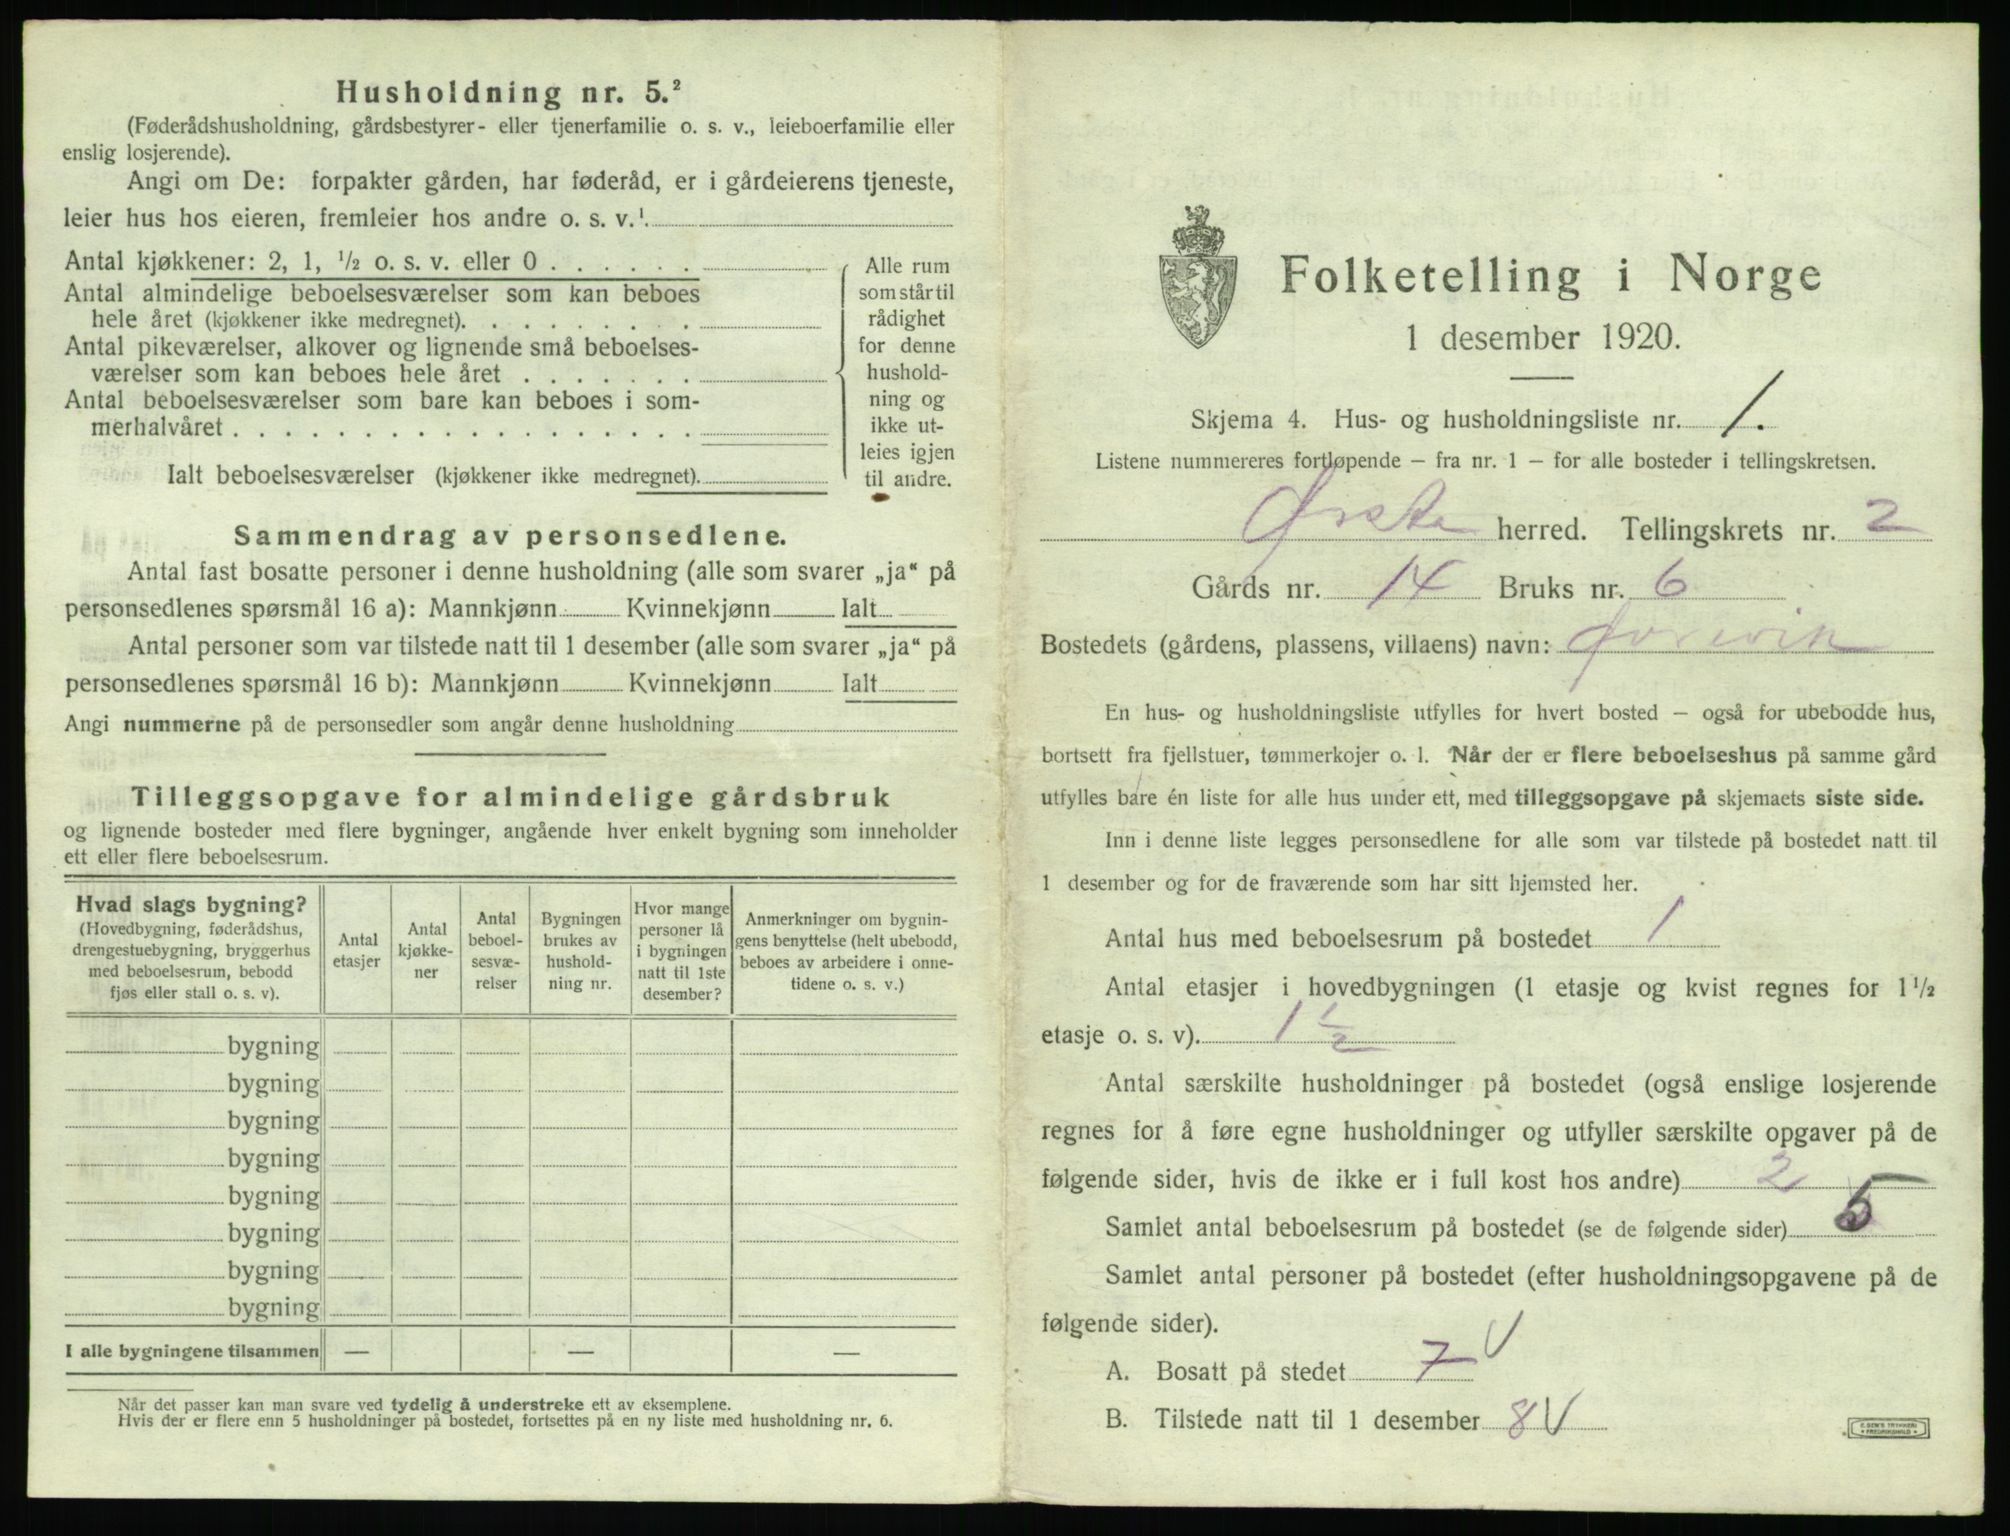 Husholdning nr. 5.²
(Føderådshusholdning, gårdsbestyrer- eller tjenerfamilie o. s. v., leieboerfamilie eller
enslig losjerende).
Angi om De: forpakter gården, har føderåd, er i gårdeierens tjeneste,
leier hus hos eieren, fremleier hos andre o. s. v.¹
Antal kjøkkener: 2, 1, ½ o. s. v. eller 0 . . . . . .
Antal almindelige beboelsesværelser som kan beboes
hele året (kjøkkener ikke medregnet). . . . . . . . .
Antal pikeværelser, alkover og lignende små beboelses-
værelser som kan beboes hele året . . . . . . .
Antal beboelsesværelser som bare kan beboes i som-
merhalvåret . . . . . . . . . . . . . . . . .
Ialt beboelsesværelser (kjøkkener ikke medregnet).
Alle rum
som står til
rådighet
for denne
hushold-
ning og
ikke ut-
leies igjen
til andre.
Sammendrag av personsedlene.
Antal fast bosatte personer i denne husholdning (alle som svarer „ja“ på
personsedlenes spørsmål 16 a): Mannkjønn Kvinnekjønn Ialt
Antal personer som var tilstede natt til 1 desember (alle som svarer „ja“ på
personsedlenes spørsmål 16 b): Mannkjønn Kvinnekjønn Ialt
Angi nummerne på de personsedler som angår denne husholdning
Tilleggsopgave for almindelige gårdsbruk
og lignende bosteder med flere bygninger, angående hver enkelt bygning som inneholder
ett eller flere beboelsesrum.
Hvad slags bygning?
(Hovedbygning, føderådshus,
drengestuebygning, bryggerhus
med beboelsesrum, bebodd
fjøs eller stall o. s. v).
Antal
etasjer
Antal
kjøkke-
ner
Antal
beboel-
sesvæ-
relser
Bygningen
brukes av
hushold-
ning nr.
Hvor mange
personer lå
i bygningen
natt til 1ste
desember?
Anmerkninger om bygnin-
gens benyttelse (helt ubebodd,
beboes av arbeidere i onne-
tidene o. s. v.)
bygning
bygning
bygning
bygning
bygning
bygning
bygning
bygning
I alle bygningene tilsammen — — —
Når det passer kan man svare ved tydelig å understreke ett av eksemplene.
Hvis der er flere enn 5 husholdninger på bostedet, fortsettes på en ny liste med husholdning nr. 6.
Folketelling i Norge
1 desember 1920.
Skjema 4. Hus- og husholdningsliste nr. 1.
Listene nummereres fortløpende – fra nr. 1 – for alle bosteder i tellingskretsen.
Ørsta herred. Tellingskrets nr. 2
Gårds nr. 14 Bruks nr. 6
Bostedets (gårdens, plassens, villaens) navn:
En hus- og husholdningsliste utfylles for hvert bosted – også for ubebodde hus,
bortsett fra fjellstuer, tømmerkojer o. l. Når der er flere beboelseshus på samme gård
utfylles bare én liste for alle hus under ett, med tilleggsopgave på skjemaets siste side.
Inn i denne liste legges personsedlene for alle som var tilstede på bostedet natt til
1 desember og for de fraværende som har sitt hjemsted her.
Antal hus med beboelsesrum på bostedet 1
Antal etasjer i hovedbygningen (1 etasje og kvist regnes for 1½
etasje o. s. v). 1½
Antal særskilte husholdninger på bostedet (også enslige losjerende
regnes for å føre egne husholdninger og utfyller særskilte opgaver på de
følgende sider, hvis de ikke er i full kost hos andre) 2
Samlet antal beboelsesrum på bostedet (se de følgende sider) 5
Samlet antal personer på bostedet (efter husholdningsopgavene på de
følgende sider).
A. Bosatt på stedet 7 V
B. Tilstede natt til 1 desember 8 V